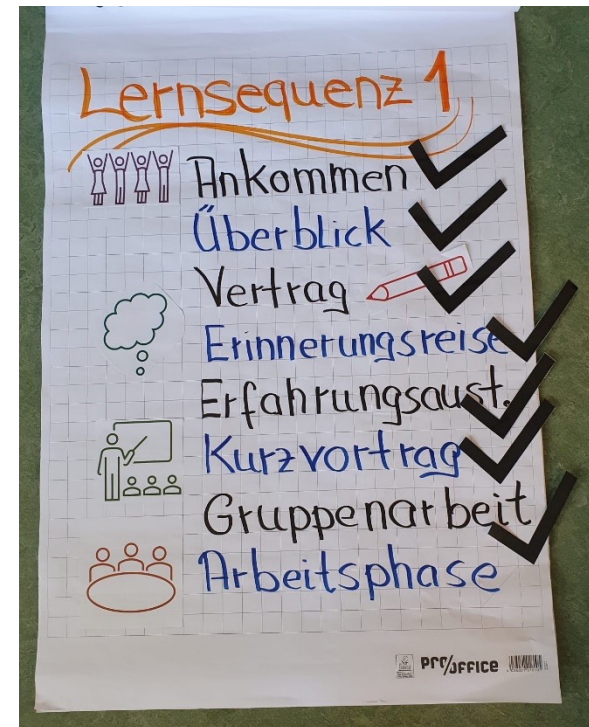 Lernsequenz 1
Ankommen
Überblick
Vertrag
Erinnerungsreise
Erfahrungsaust.
Kurzvortrag
Gruppenarbeit
Arbeitsphase
PRO/OFFICE